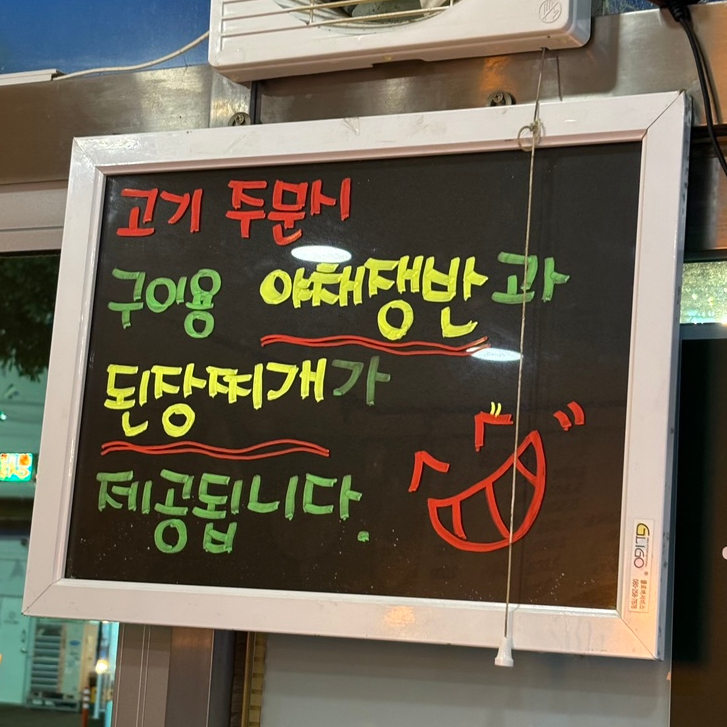 고기 주문시
구이용 야채쟁반과
된장찌개가
제공됩니다.
GLIGO